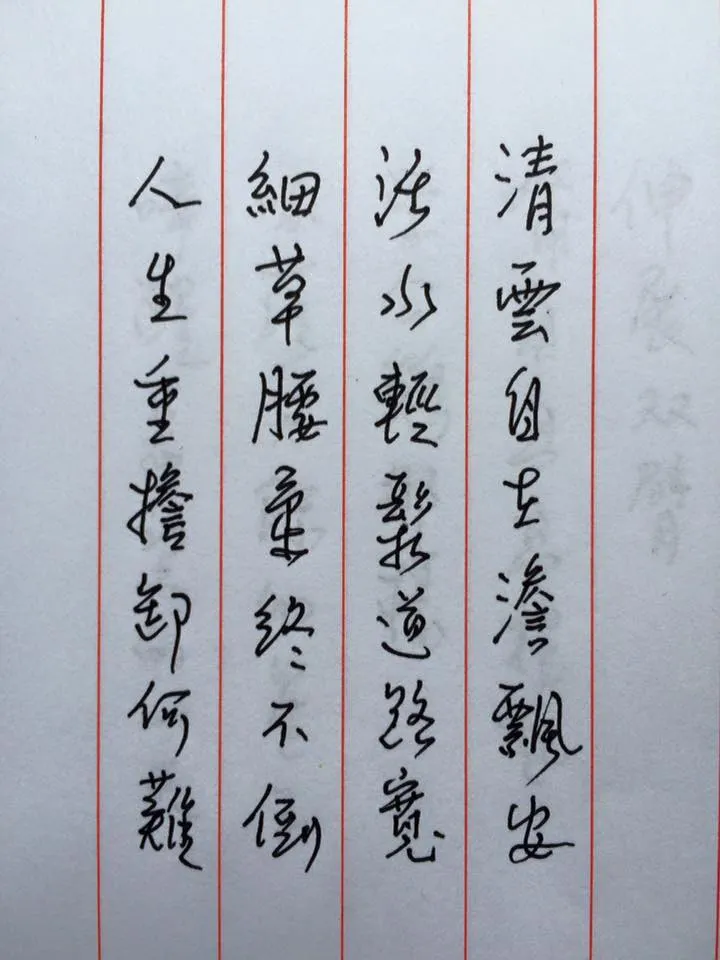 清雲自在澹飄安
活水輕鬆道路寬
細草腰柔終不倒
人生重擔卸何難